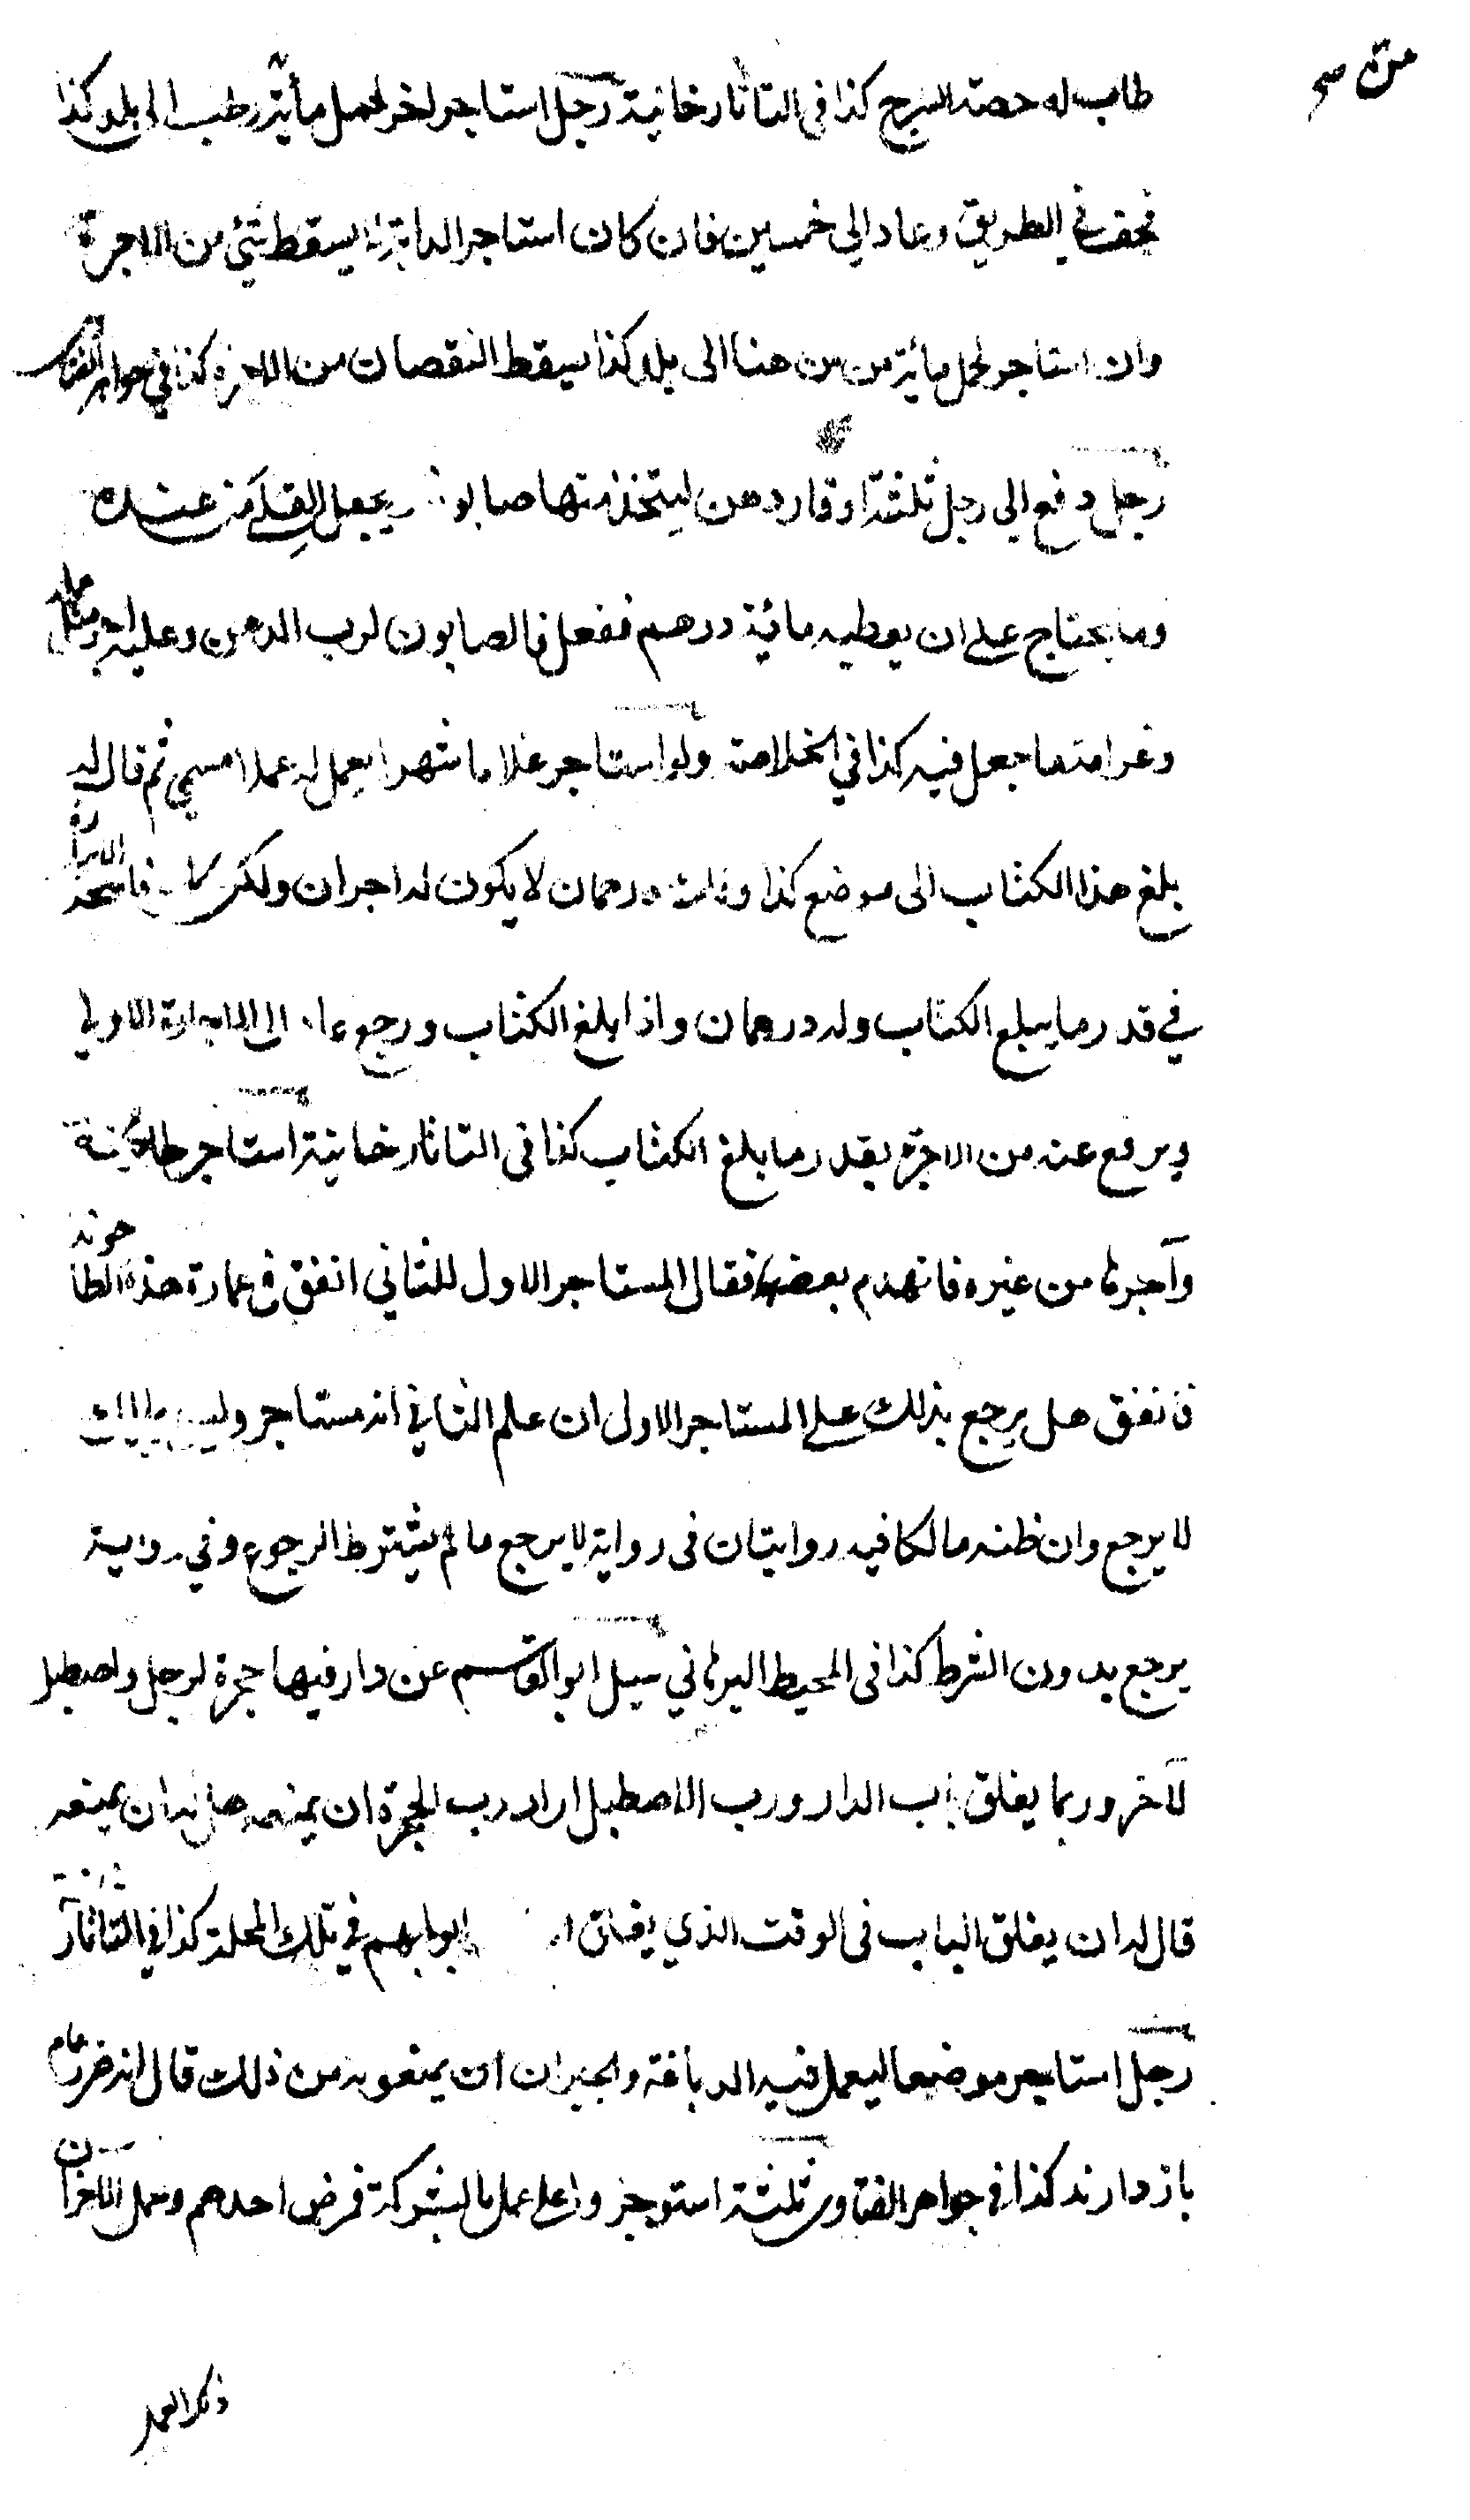 من صح
طاب له حصة السرج كذا في التاتارخانية رجل استاجر اخر لحمل مأية رطب الى بلد كذا
فجف في الطريق وعاد الي خمسين فان كان استاجر الدابة لا يسقط شئ من الاجرة
وان استاجر لحمل مأية من من هنا الى بلد كذا يسقط النقصان من الاجرة كذا في جواهر الفتاوى
رجل دفع الي رجل ثلثة اوقار دهن ليتخذ منها صابونا ويجعل القلي من عنده
وما يحتاج علي ان يعطيه مائة درهم ففعل فالصابون لرب الدهن وعليه اجر مثل عمله
وغرامة ما جعل فيه كذا في الخلاصة ولو استاجر غلاما شهرا يعمل له عملا مسمي ثم قال له
بلغ هذا الكتاب الى موضع كذا ولك درهمان لا يكون له اجران ولكن فاسخة الاجارة
في قدر ما يبلغ الكتاب وله درهمان واذا بلغ الكتاب ورجع عاد الى الاجارة الاولي
ويرفع عنه من الاجرة بقدر ما بلغ الكتاب كذا في التاتارخانية استاجر طاحونة
وآجرها من غيره فانهدم بعضها فقال المستاجر الاول للثاني انفق في عمارة هذه الطاحونة
فانفق هل يرجع بذلك علي المستاجر الاول ان علم الثاني انه مستاجر وليس بمالك
لا يرجع وان ظنه مالكا فيه روايتان في رواية لا يرجع ما لم يشترط الرجوع وفي رواية
يرجع بدون الشرط كذا في المحيط البرهاني سيل ابو القاسم عن دار فيها حجرة لرجل واصطبل
لآخر وربما يغلق باب الدار ورب الاصطبل اراد رب الحجرة ان يمنعه هل له ان يمنعه
قال له ان يغلق الباب في الوقت الذي يغلق ابوابهم في تلك المحلة كذا في التاتارخانية
رجل استاجر موضعا ليعمل فيه الدباغة والجيران ان يمنعونه من ذلك قال انه ضرر عام
باز دارند كذا في جواهر الفتاوى ثلثة استوجروا علي عمل بالشركة فمرض احدهم وعمل الاخران
ذكر العمل